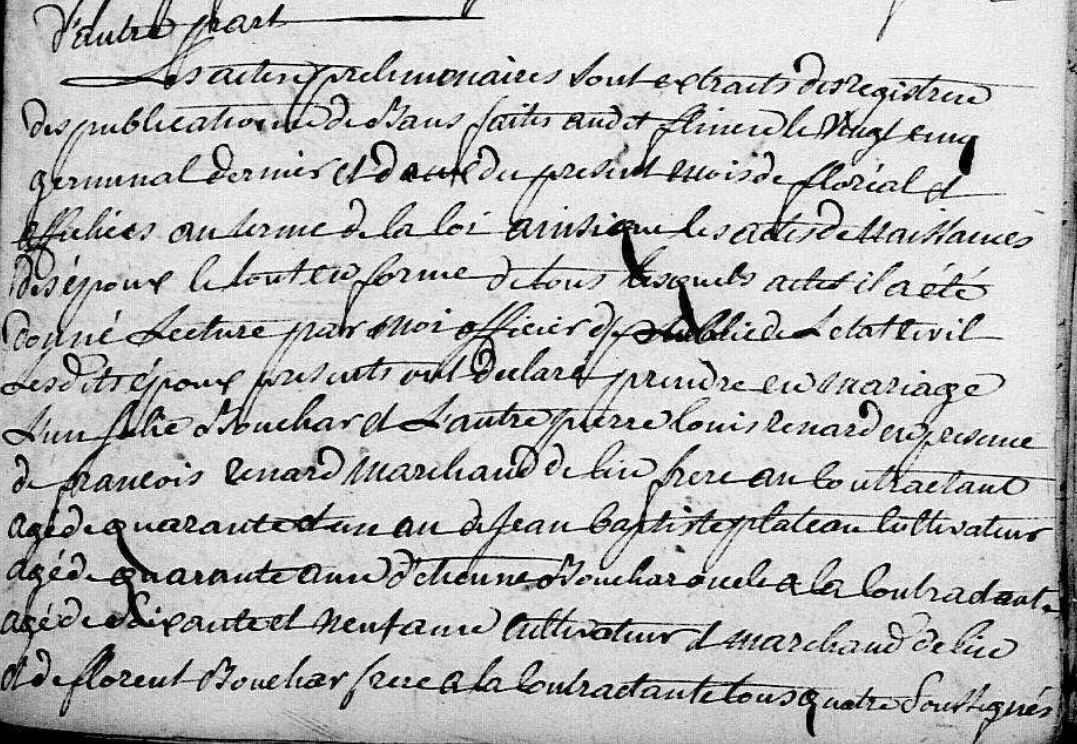 d'autre part
Les actes preliminaires sont extraits des registres
des publications de Bans faites audit le Vingt cinq
germinal dernier et deux du present mois de floréal et
affichées au terme de la loi ainsi que les actes de Naissances
des époux le tout en forme de tous lesquels actes il a été
donné Lecture par moi officier public de L'etat Civil
Lesdits époux presents ont declaré prendre en mariage
L'un Bouchar et L'autre pierre louis Renard en presence
de françois Renard Marchand de lin frere au Contractant
agé de quarante et un an de Jean baptiste plateau Cultivateur
agé de quarante ans d'etienne Bouchar oncle a la Contractante
agé de Soixante et Neuf ans Cultivateur et marchand de lin
et de florent Bouchar frere a la Contractante tous quatre Soussignés